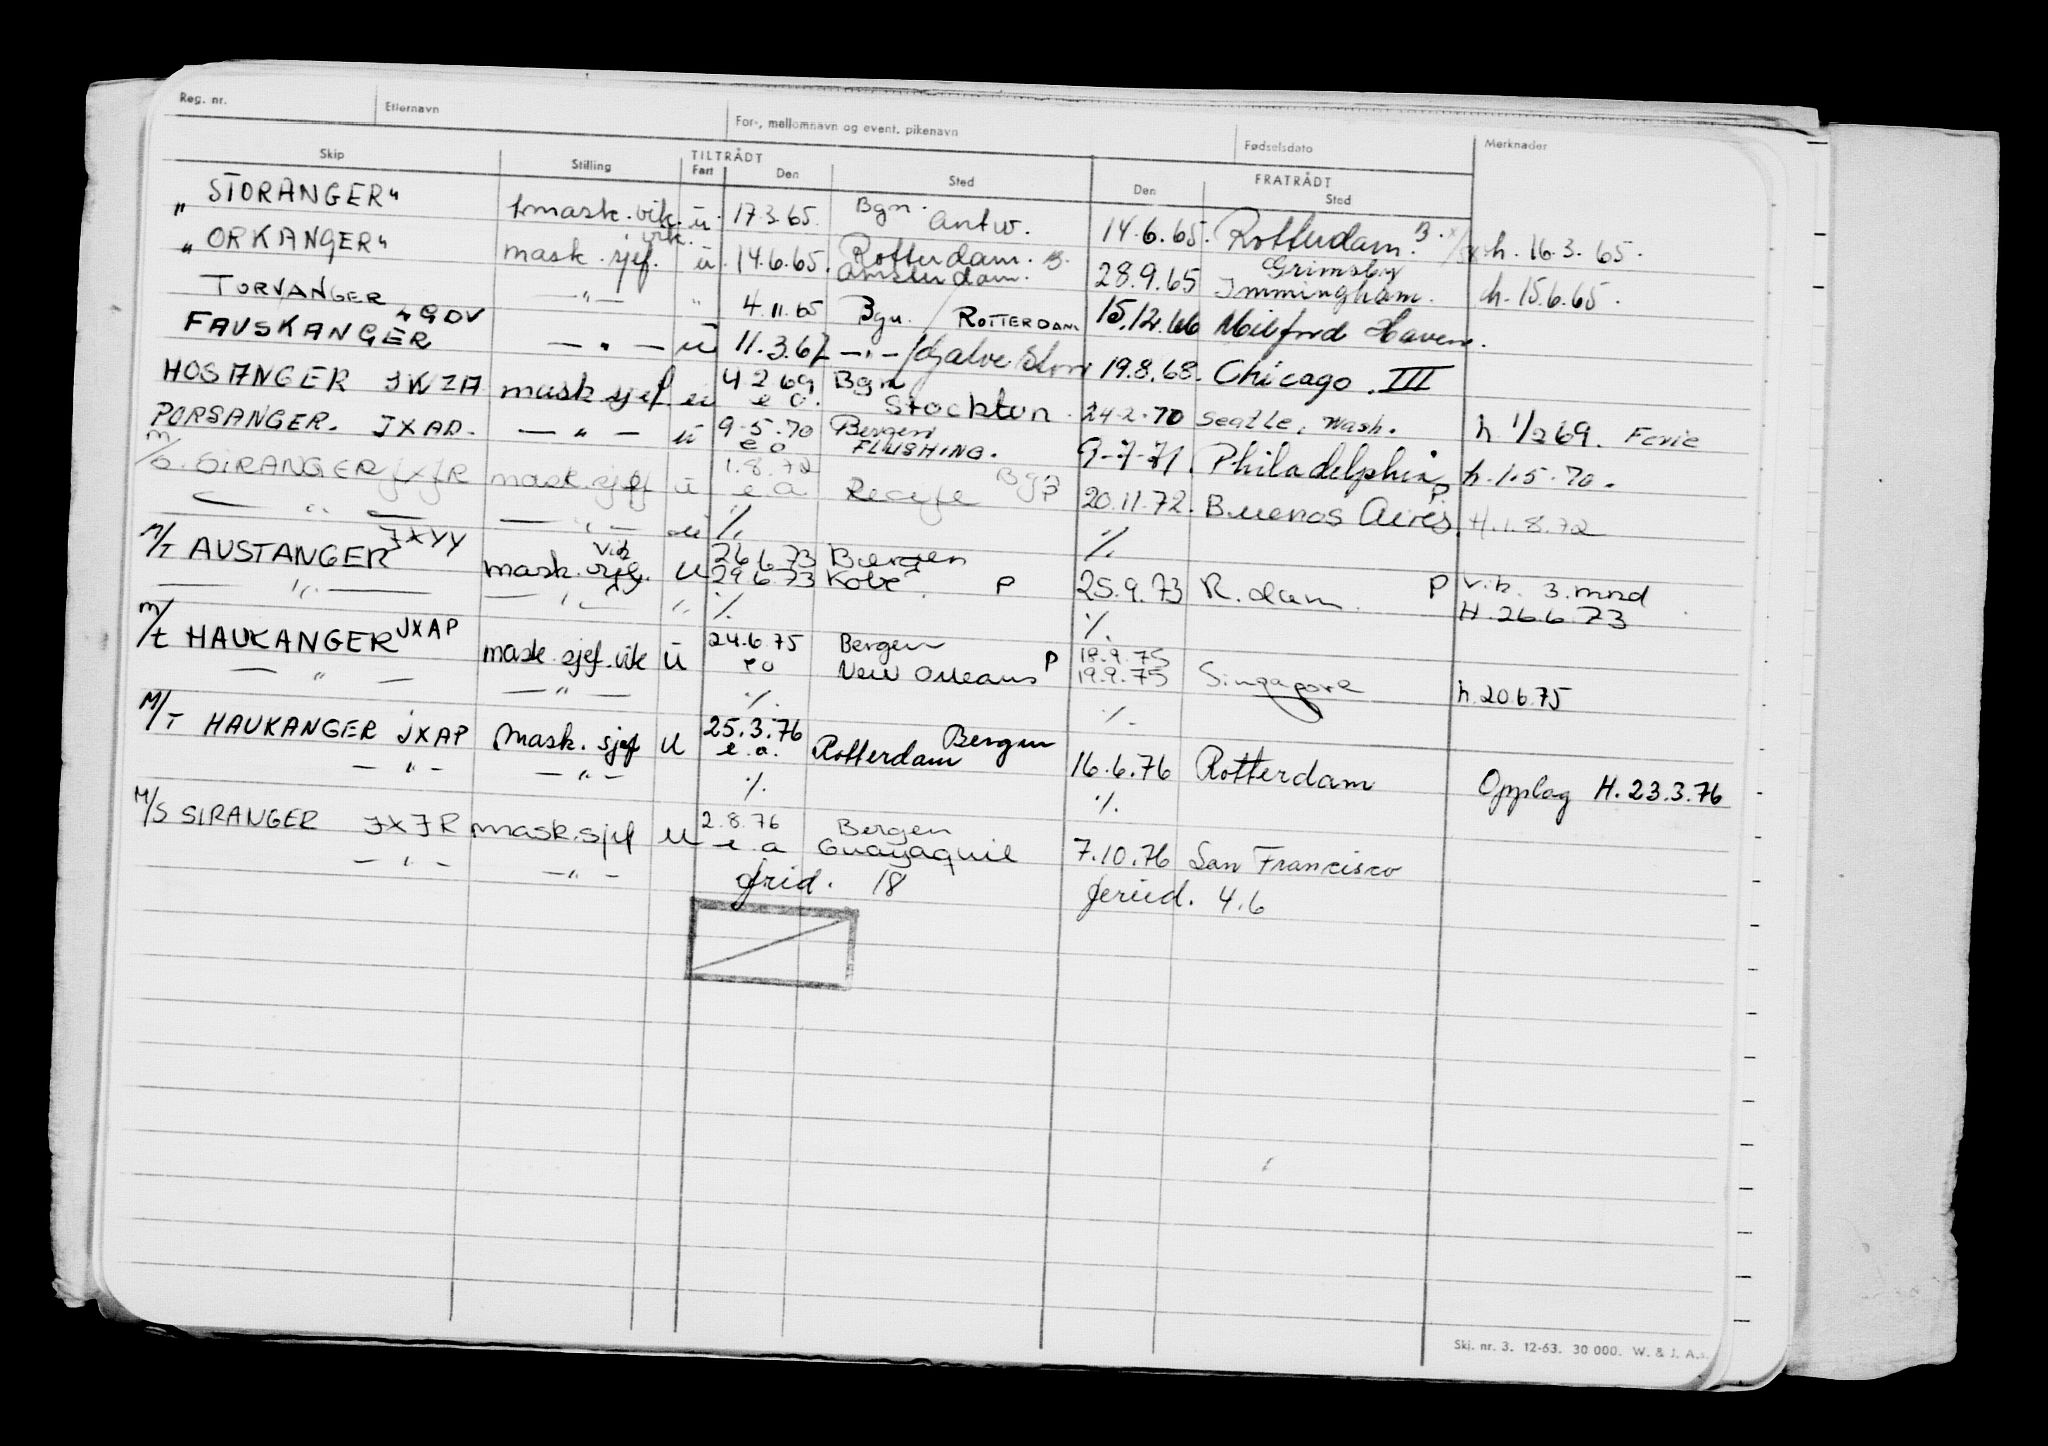 Reg. nr. Etternavn For-, mellomnavn og event. pikenavn Fødselsdato Merknader
TILTRÅDT FRATRÅDT
Skip Stilling Fart Den Sted Den Sted
„STORANGER" 1 mask. vik. u. 17.3.65. Bgn. Antw. 14.6.65. Rotterdam. B. h. 16.3.65.
„ORKANGER" mask. sjef. vik. u. 14.6.65. Rotterdam. B. Amsterdam. 28.9.65 Grimsby Immingham. h. 15.6.65.
TORVANGER — " — " 4.11.65 Bgn. / ROTTERDAM 15.12.66 Milford Haven.
FAUSKANGER LGDV — " — u 11.3.67 — " — / Galveston 19.8.68. Chicago. III
HOSANGER JKZA mask sjef u 4.2.69 e o. Bgn Stockton. 24.2.70 Seattle, Wash. h. 1/2 69. Ferie
PORSANGER. JXAD. — " — u 9.5.70 e o Bergen FLUSHING. 9-7-71. Philadelphia h. 1.5.70.
M/S. SIRANGER JXJR mask. sjef u 1.8.72 e a Recife Bg P 20.11.72. Buenos Aires. P H. 1.8.72
— " — — " — u % %
M/T AUSTANGER JXYY mask. sjef. vik u 26.6.73 29.6.73 Bergen Kobe. P 25.9.73 R.dam. P vik. 3. mnd.
— " — — " — " % % H. 26.6.73
M/t HAUKANGER JXAP mask. sjef. vik u 24.6.75 e o Bergen New Orleans P 18.9.75 19.9.75 Singapore h. 20.6.75
— " — — " — % %
M/T HAUKANGER JXAP Mask. sjef u 25.3.76 e.o. Bergen Rotterdam 16.6.76 Rotterdam Opplag H. 23.3.76
— " — — " — % %
M/S SIRANGER JXJR mask. sjef u 2.8.76 e a Bergen Guayaquil 7.10.76 San Francisco
— " — — " — frid. 18 feried. 46
Skj. nr. 3. 12-63. 30 000. W. & J. A.s.